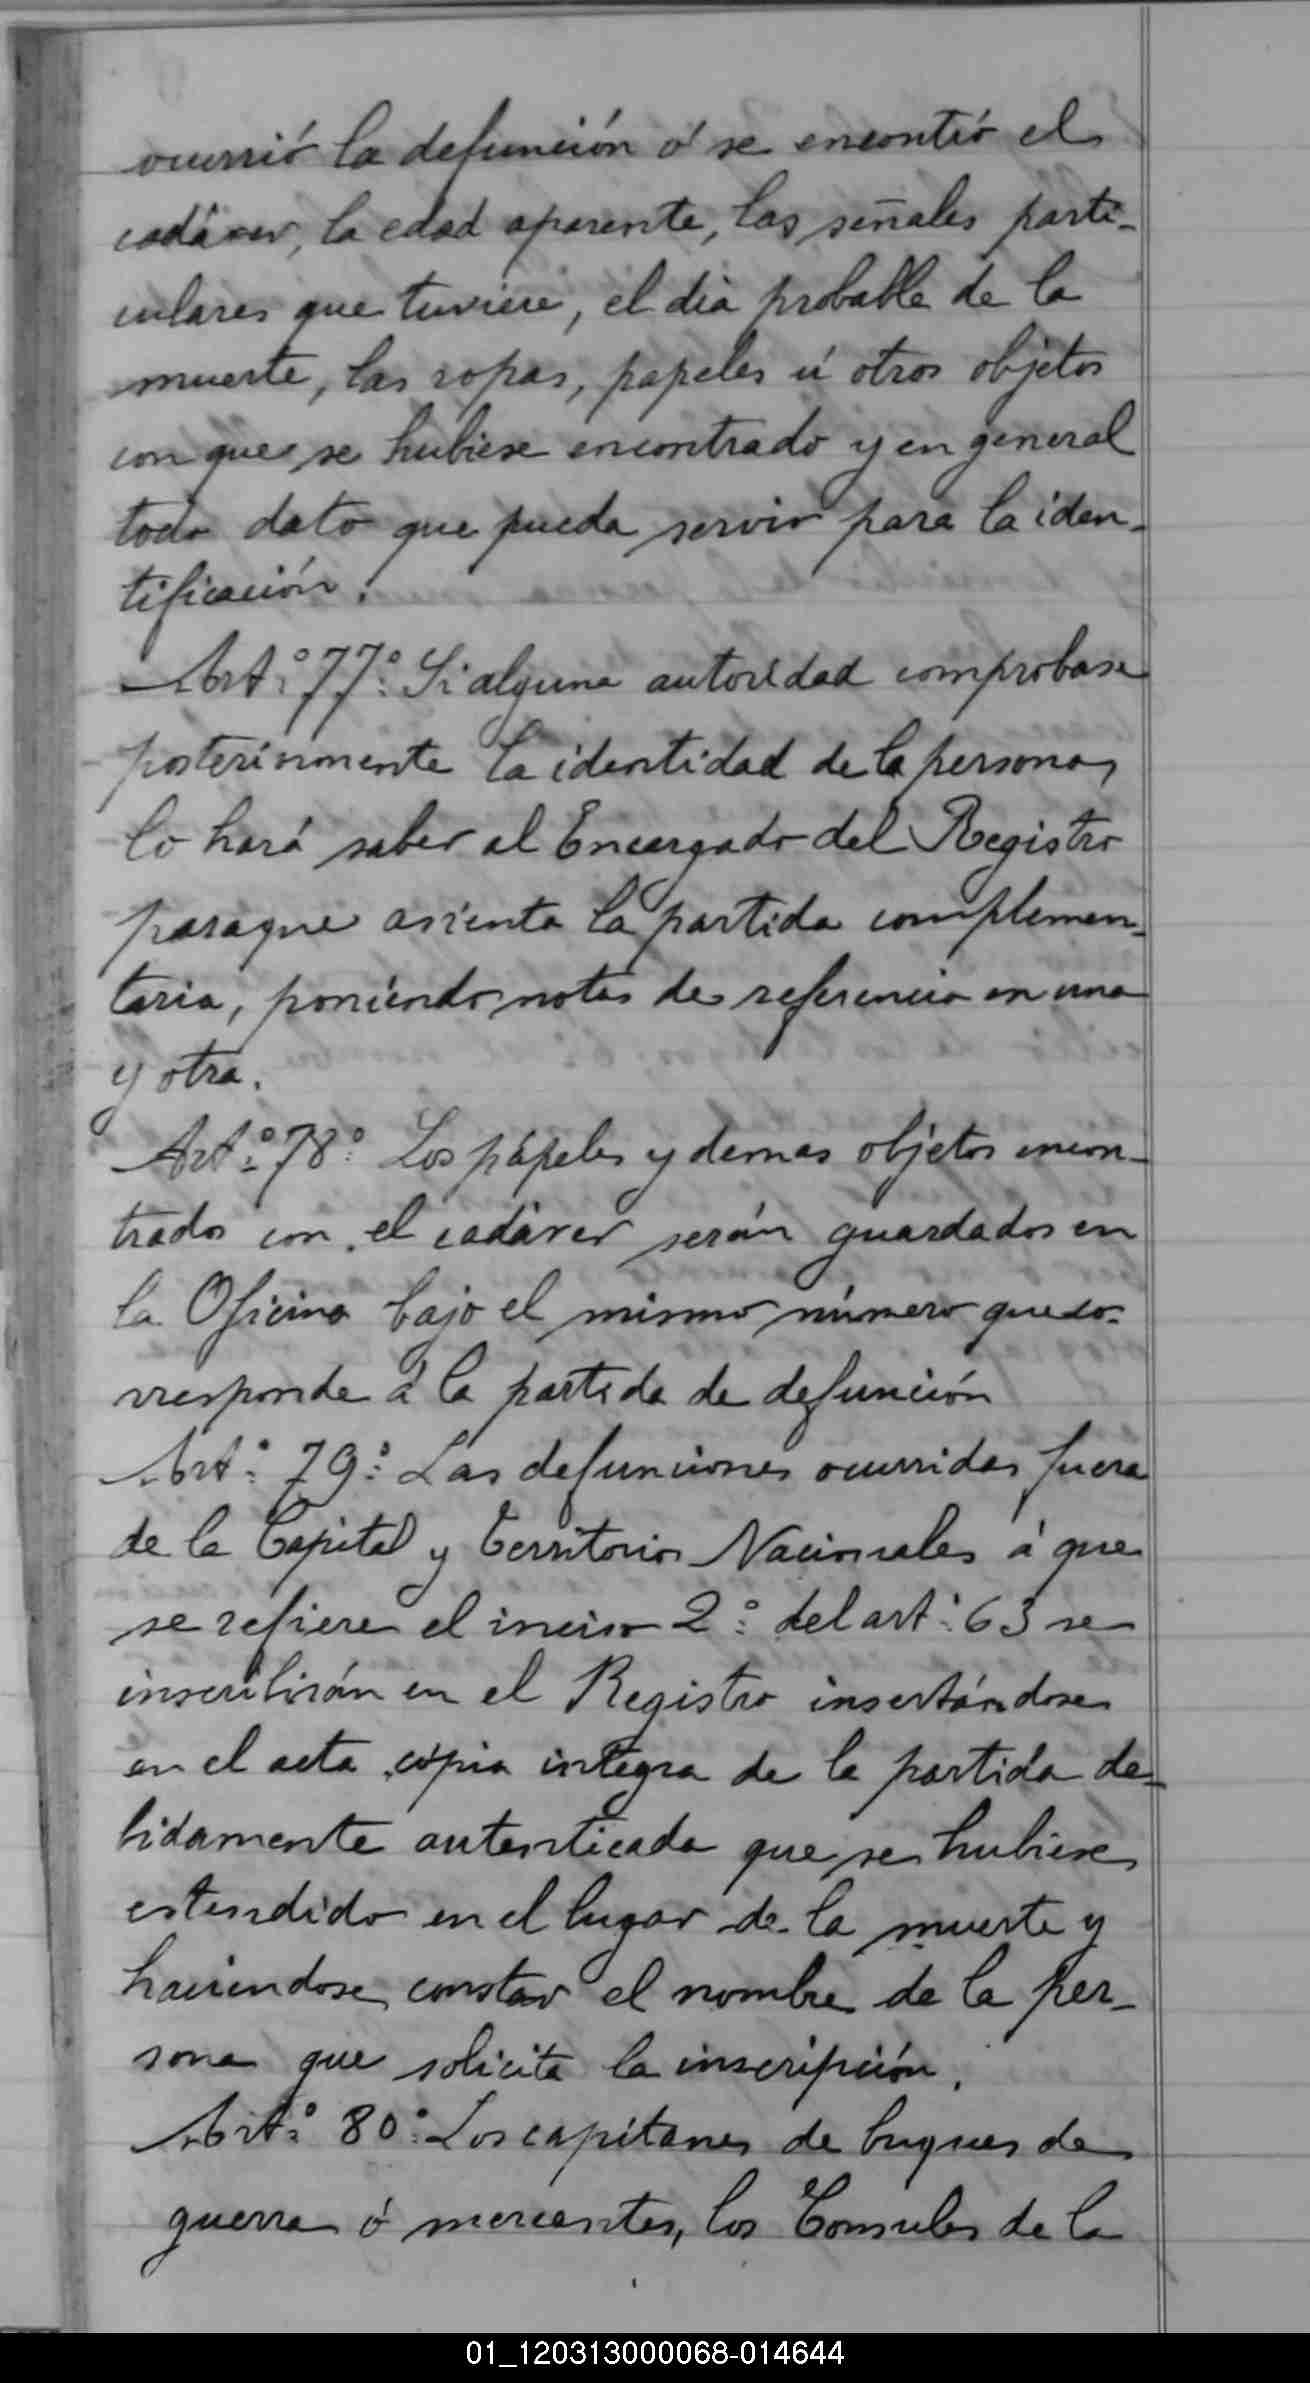 ocurrió la defunción ó se encontró el
cadáver, la edad aparente, las señales parti-
culares que tuviere, el dia probable de la
muerte, las ropas, papeles ú otros objetos
con que se hubiese encontrado y en general
todo dato que pueda servir para la iden-
tificación.
Art.º 77.º Si alguna autoridad comprobase
posteriormente la identidad de la persona,
lo hará saber al Encargado del Registro
paraque asiente la partida complemen-
taria, poniendo notas de referencia en una
y otra.
Art.º 78.º Los papeles y demas objetos encon-
trados con el cadáver serán guardados en
la Oficina bajo el mismo número que co-
rresponde á la partida de defunción
Art.º 79.º Las defunciones ocurridas fuera
de la Capital y Territorios Nacionales á que
se refiere el inciso 2.º del art.º 63 se
inscribirán en el Registro insertándose
en el acta copia integra de la partida de-
bidamente autenticada que se hubiese
estendido en el lugar de la muerte y
haciendose constar el nombre de la per-
sona que solicita la inscripción.
Art.º 80.º Los capitanes de buques de
guerra ó mercantes, los Consules de la
01_120313000068-014644